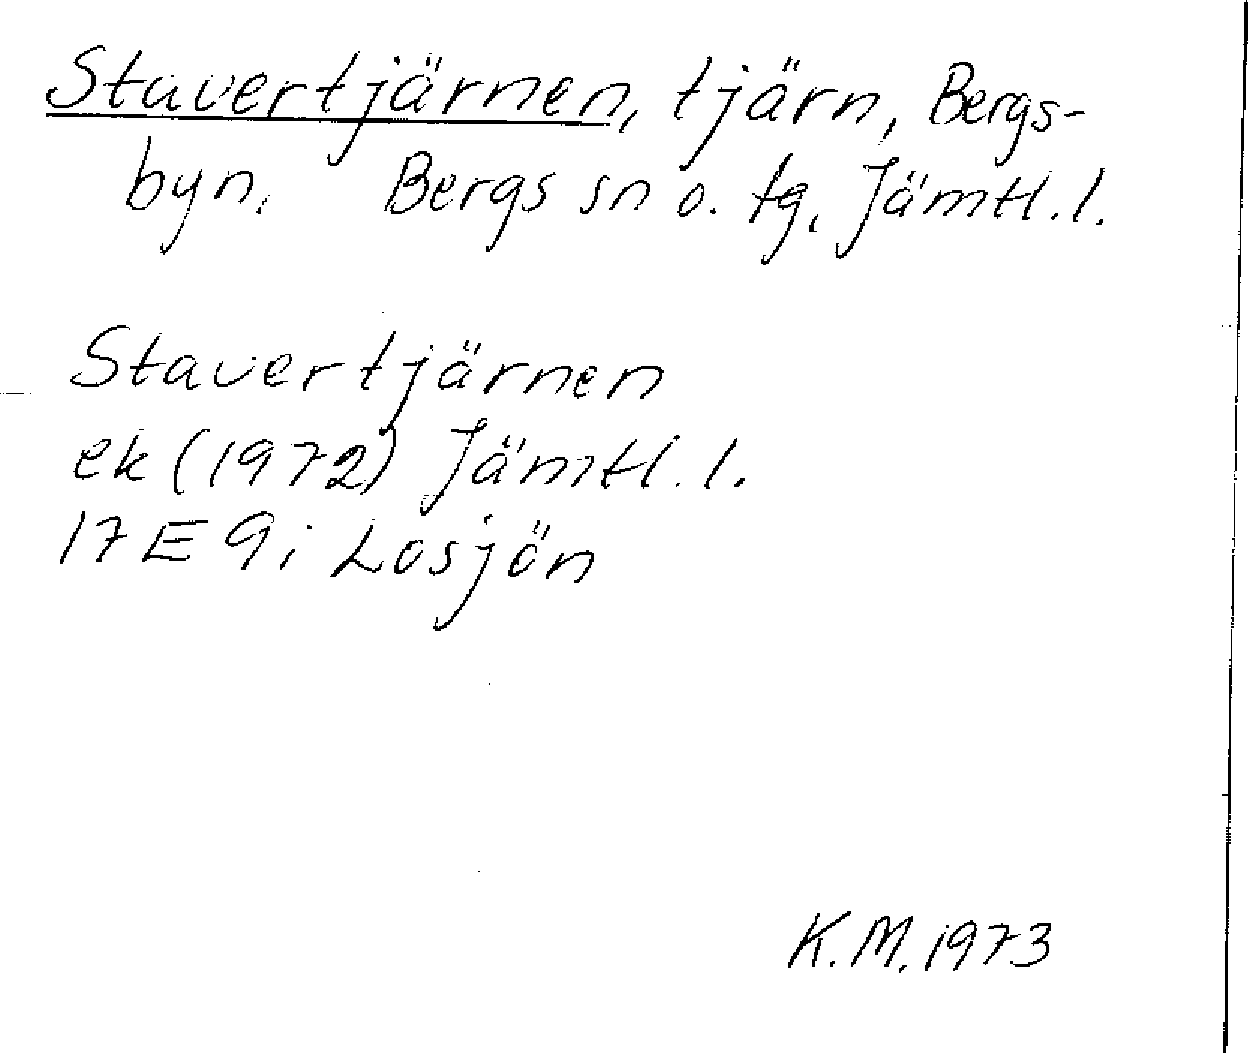 Stavertjärnen, tjärn, Bergs-
byn. Bergs sn o. tg, Jämtl. l.
Stavertjärnen
ek (1972) Jämtl. l.
17E 9i Losjön
K.M. 1973